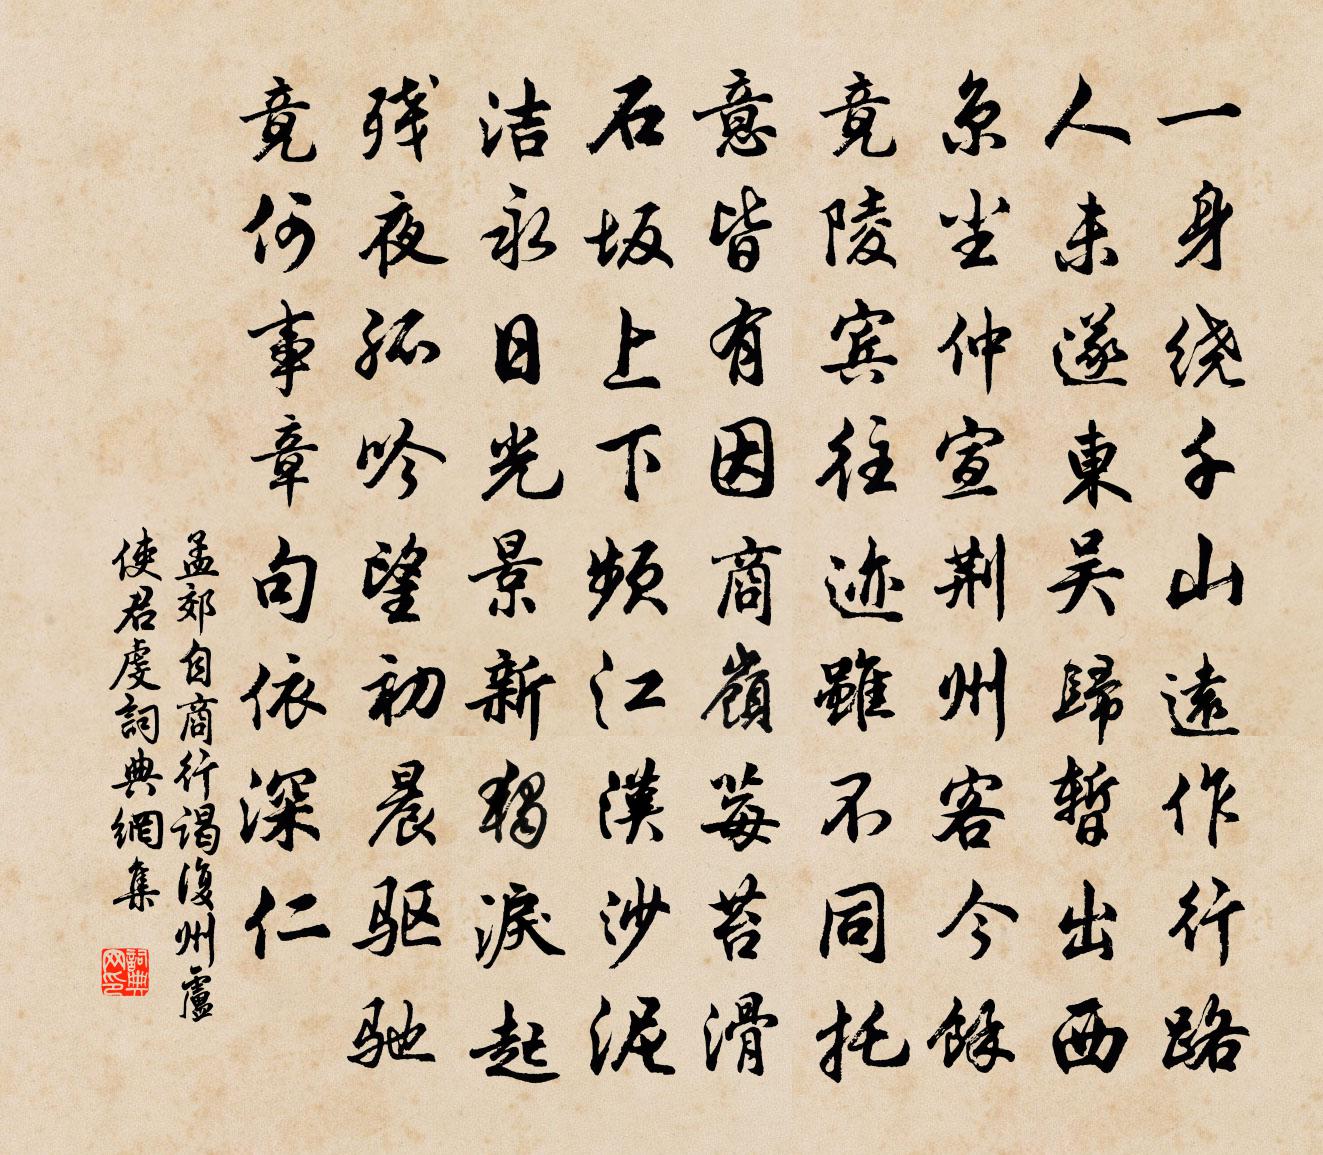 一身绕千山遠作行路
人未遂東吴歸暫出西
京坐仲宣荆州客今餘
竟陵宾往迹雖不同托
意皆有因商嶺莓苔滑
石坂上下频江漢沙泥
洁永日光景新獨淚起
残夜孤吟望初晨驱驰
竟何事章句依深仁
孟郊自商行谒復州盧
使君虔詞典網集
詞典网印